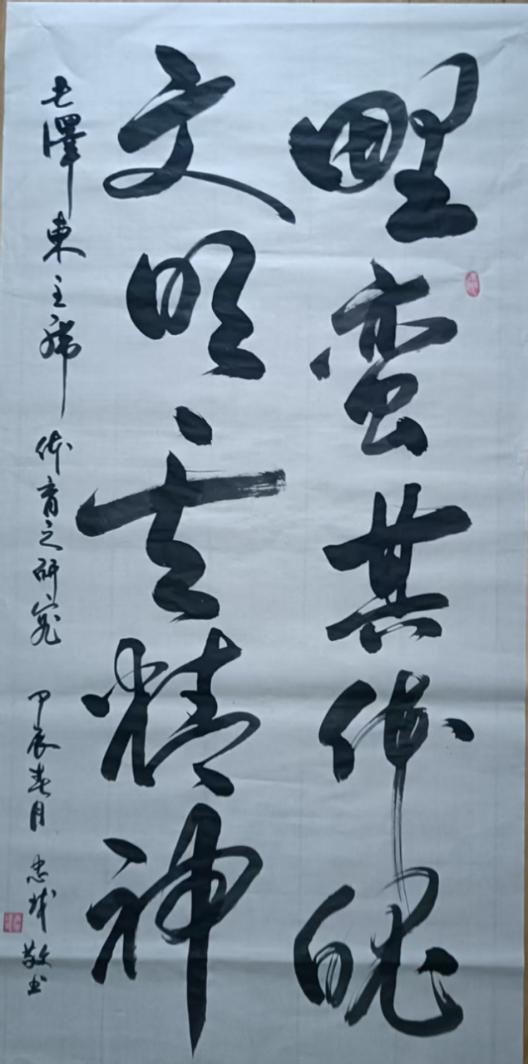 野蛮其体魄
文明其精神
毛澤東主席 体育之研究 甲辰春月 忠斌敬书